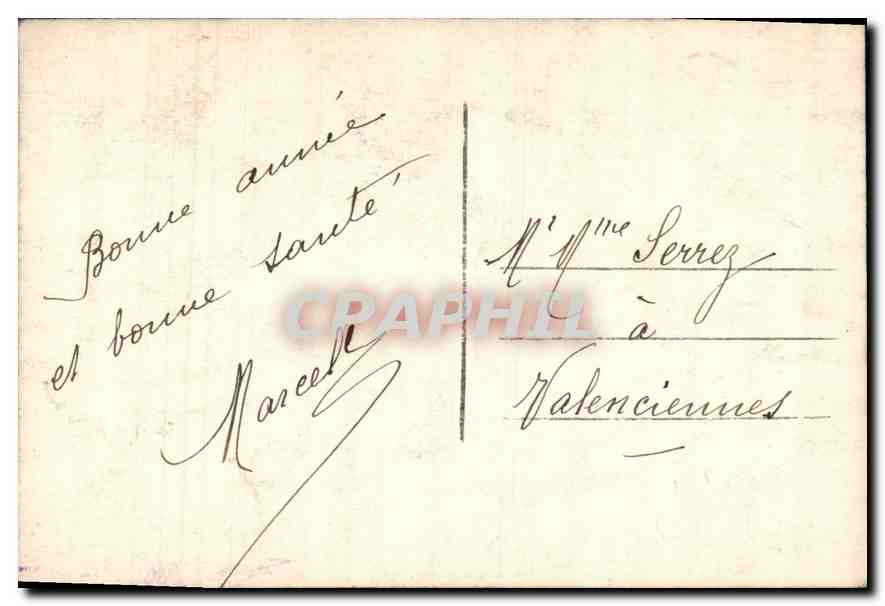 Bonne année
et bonne santé
Marcelle
Mr Mme Serrez
à
Valenciennes
CPAPHIL